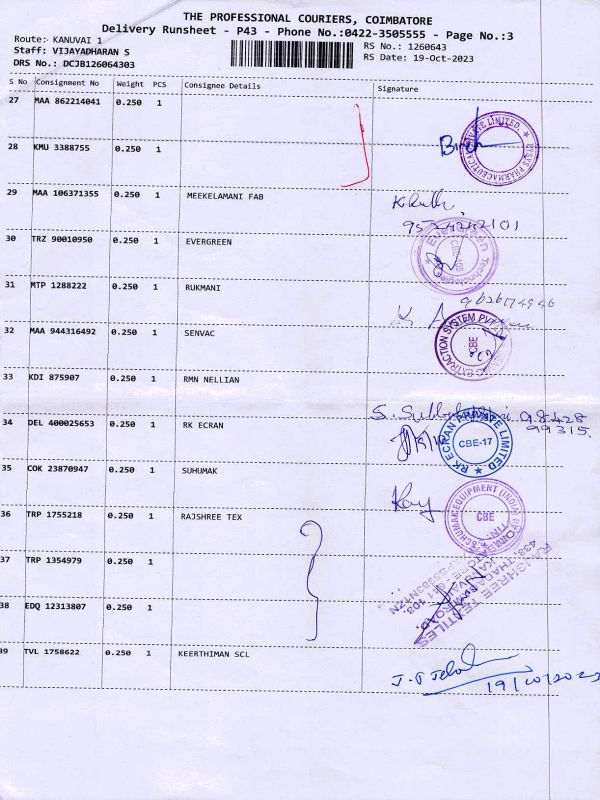 THE PROFESSIONAL COURIERS, COIMBATORE
Delivery Runsheet - P43 - Phone No.:0422-3505555 - Page No.:3
Route: KANUVAI 1
Staff: VIJAYADHARAN S
DRS No.: DCJB126064303
RS No.: 1260643
RS Date: 19-Oct-2023
S No Consignment No Weight PCS Consignee Details Signature
27 MAA 862214041 0.250 1
28 KMU 3388755 0.250 1
29 MAA 106371355 0.250 1 MEEKELAMANI FAB
30 TRZ 90010950 0.250 1 EVERGREEN
Evergreen Technologies
31 MTP 1288222 0.250 1 RUKMANI
9626174946
32 MAA 944316492 0.250 1 SENVAC
EXTRACTION SYSTEM PVT
CBE
33 KDI 875907 0.250 1 RMN NELLIAN
34 DEL 400025653 0.250 1 RK ECRAN
98428
99315
RK ECRAN PRIVATE LIMITED
CBE-17
35 COK 23870947 0.250 1 SUHUMAK
SCHUMAK EQUIPMENT (INDIA)
CBE
36 TRP 1755218 0.250 1 RAJSHREE TEX
RAJSHREE TEXTILES
37 TRP 1354979 0.250 1
38 EDQ 12313807 0.250 1
39 TVL 1758622 0.250 1 KEERTHIMAN SCL
19/10/2023